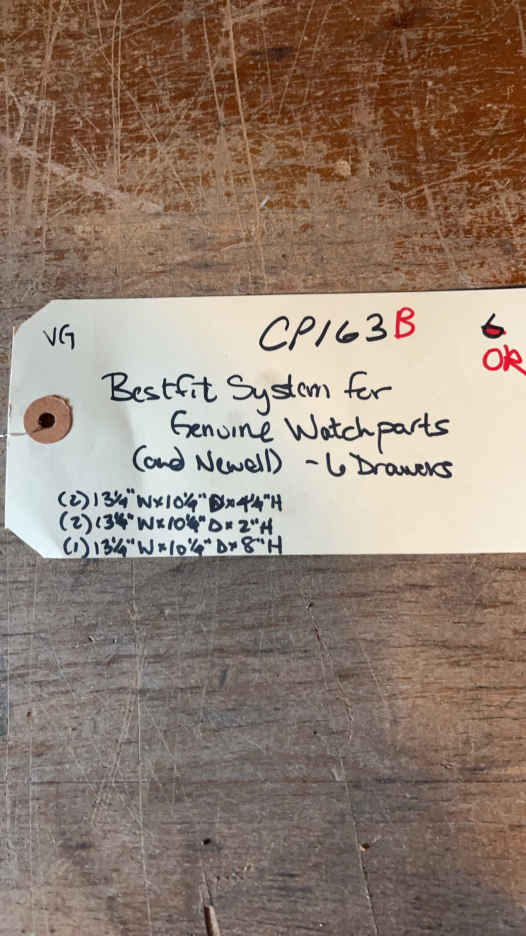 VG CP163B 6
OK
Bestfit System for
Genuine Watchparts
(and Newell) - 6 Drawers
(2) 13¼" W x 10¼" D x 4¼" H
(2) 13¼" W x 10¼" D x 2" H
(1) 13¼" W x 10¼" D x 8" H